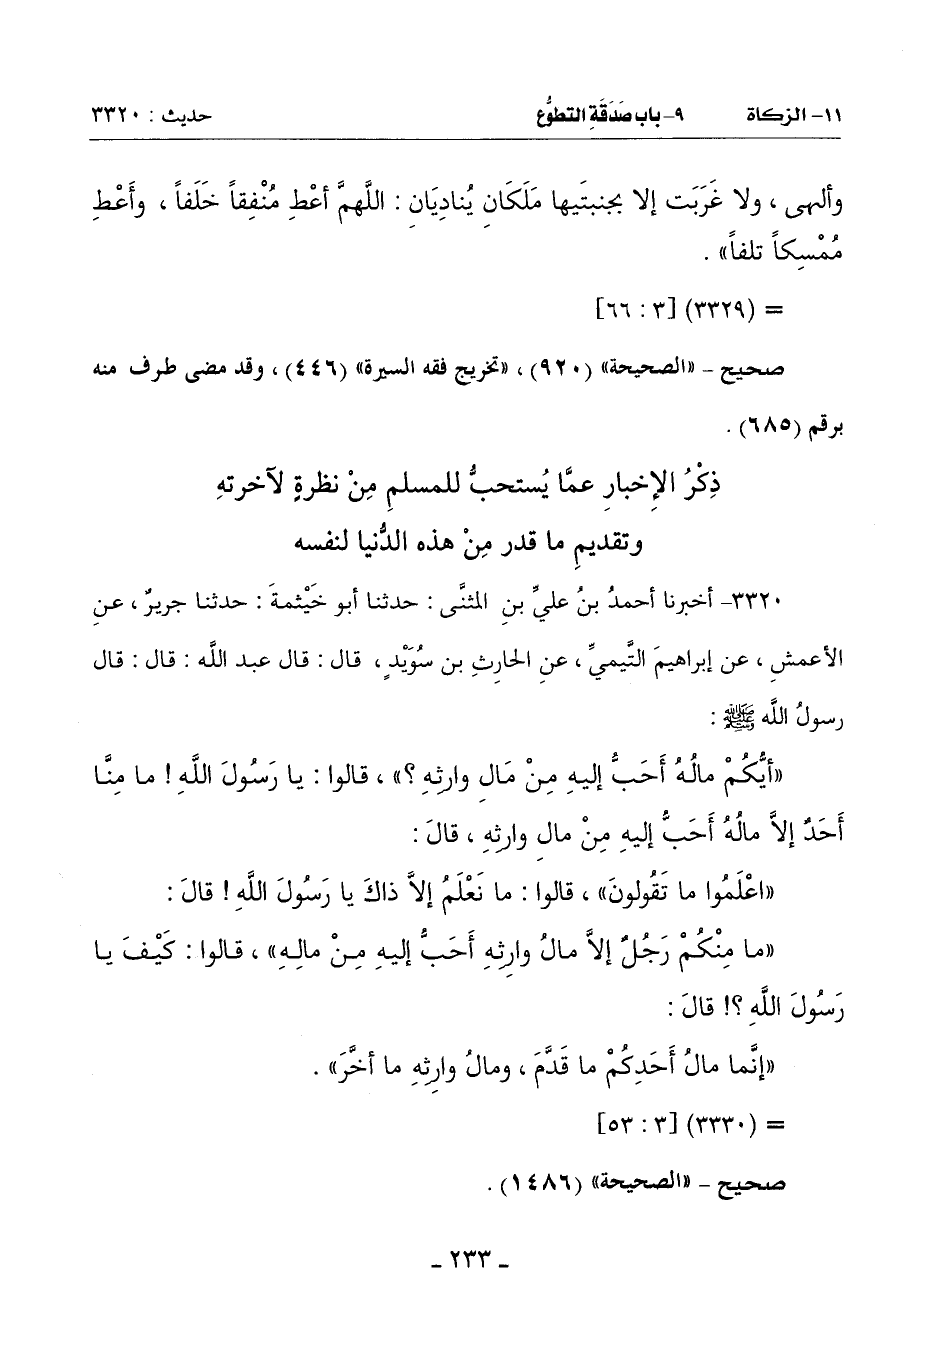 ١١- الزكاة ٩- باب صَدَقَةِ التطوُّع حديث : ٣٣٢٠
وألهى ، ولا غَرَبَت إلا بجنبتَيها مَلَكَانِ يُنادِيَانِ : اللَّهمَّ أعْطِ مُنْفِقاً خَلَفاً ، وأَعْطِ
مُمْسِكاً تلفاً» .
= (٣٣٢٩) [٣ : ٦٦]
صحيح - «الصحيحة» (٩٢٠) ، «تخريج فقه السيرة» (٤٤٦) ، وقد مضى طرف منه
برقم (٦٨٥) .
ذِكْرُ الإخبارِ عمَّا يُستحبُّ للمسلمِ مِنْ نظرةٍ لآخرتهِ
وتقديمِ ما قدر مِنْ هذه الدُّنيا لنفسه
٣٣٢٠- أخبرنا أحمدُ بنُ عليِّ بنِ المثنَّى : حدثنا أبو خَيْثمةَ : حدثنا جريرٌ ، عنِ
الأعمشِ ، عن إبراهيمَ التَّيميِّ ، عنِ الحارثِ بن سُوَيْدٍ ، قال : قال عبد اللَّه : قال : قال
رسولُ اللَّه ﷺ :
«أيُّكُمْ مالُهُ أَحَبُّ إليهِ مِنْ مَالِ وارثِهِ ؟» ، قالوا : يا رَسُولَ اللَّهِ ! ما مِنَّا
أَحَدٌ إلاَّ مالُهُ أَحَبُّ إليهِ مِنْ مالِ وارثِهِ ، قالَ :
«اعْلَمُوا ما تَقُولونَ» ، قالوا : ما نَعْلَمُ إلاَّ ذاكَ يا رَسُولَ اللَّهِ ! قالَ :
«ما مِنْكُمْ رَجُلٌ إلاَّ مالُ وارِثِهِ أَحَبُّ إليهِ مِنْ مالِهِ» ، قالوا : كَيْفَ يا
رَسُولَ اللَّهِ ؟! قالَ :
«إنَّما مالُ أَحَدِكُمْ ما قَدَّمَ ، ومالُ وارِثِهِ ما أخَّرَ» .
= (٣٣٣٠) [٣ : ٥٣]
صحيح - «الصحيحة» (١٤٨٦) .
- ٢٣٣ -